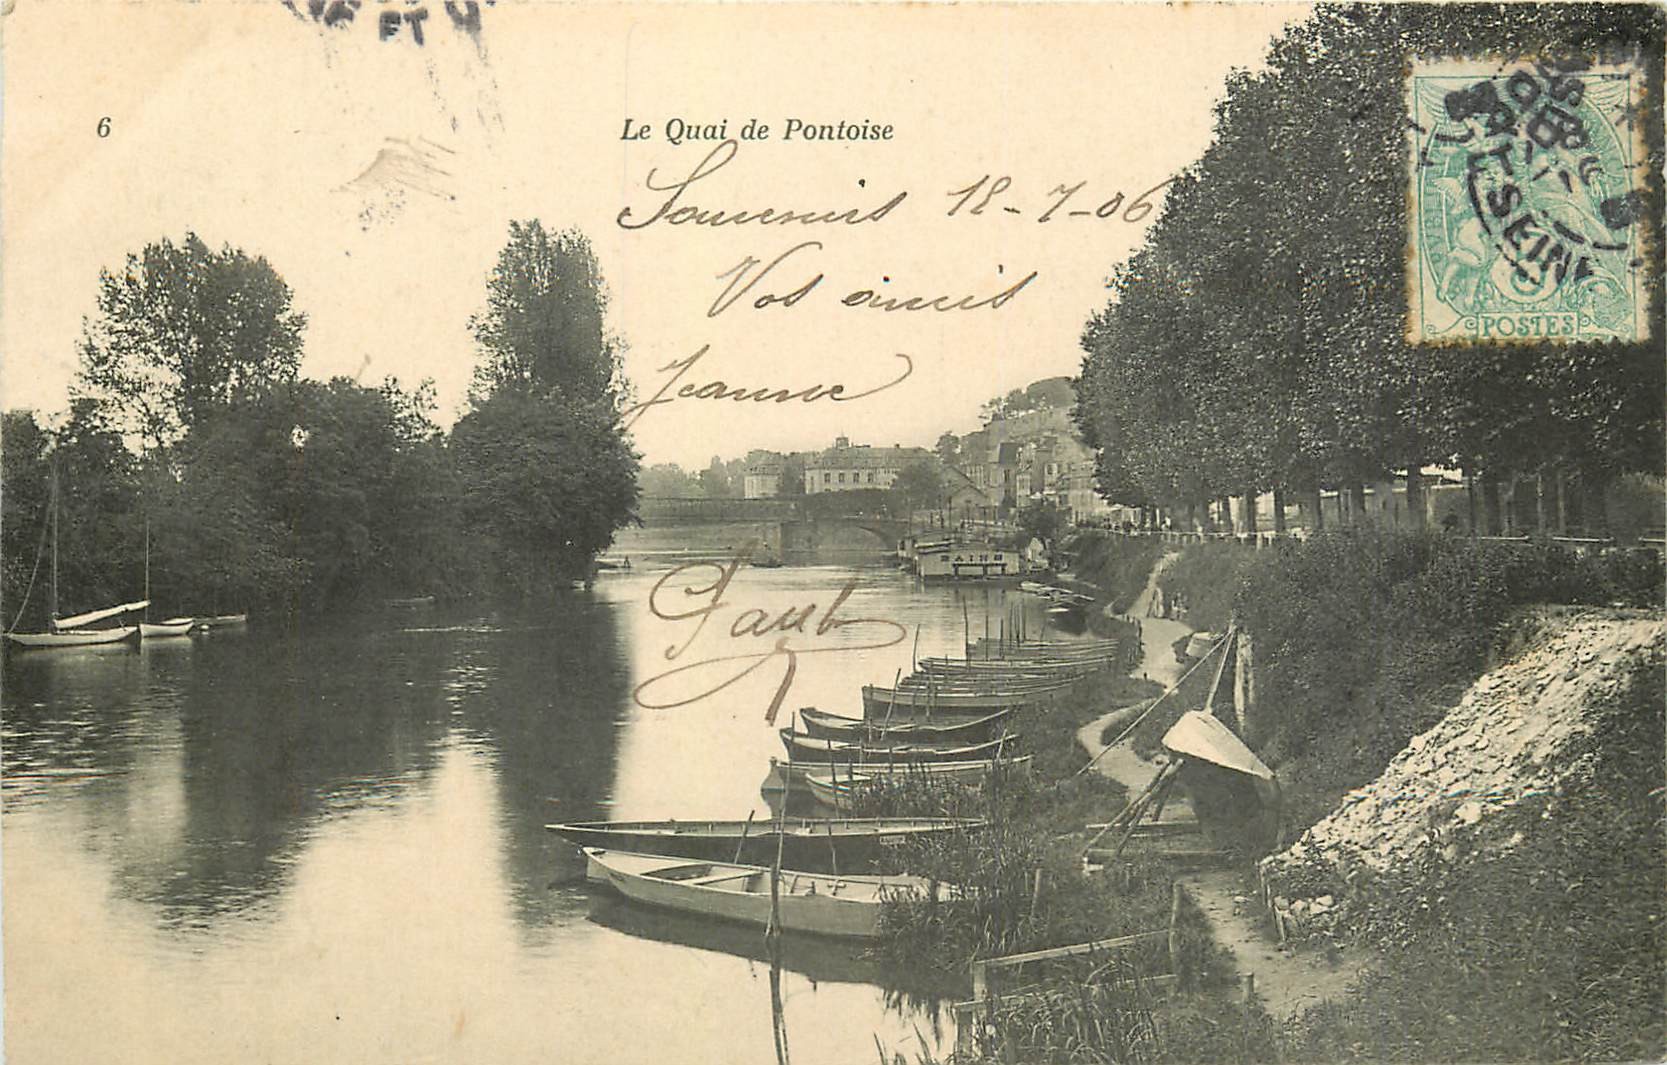 ET
6
Le Quai de Pontoise
Souvenirs 18-7-06
Vos amis
Jeanne
Paul
BAINS
ET SEINE
POSTES